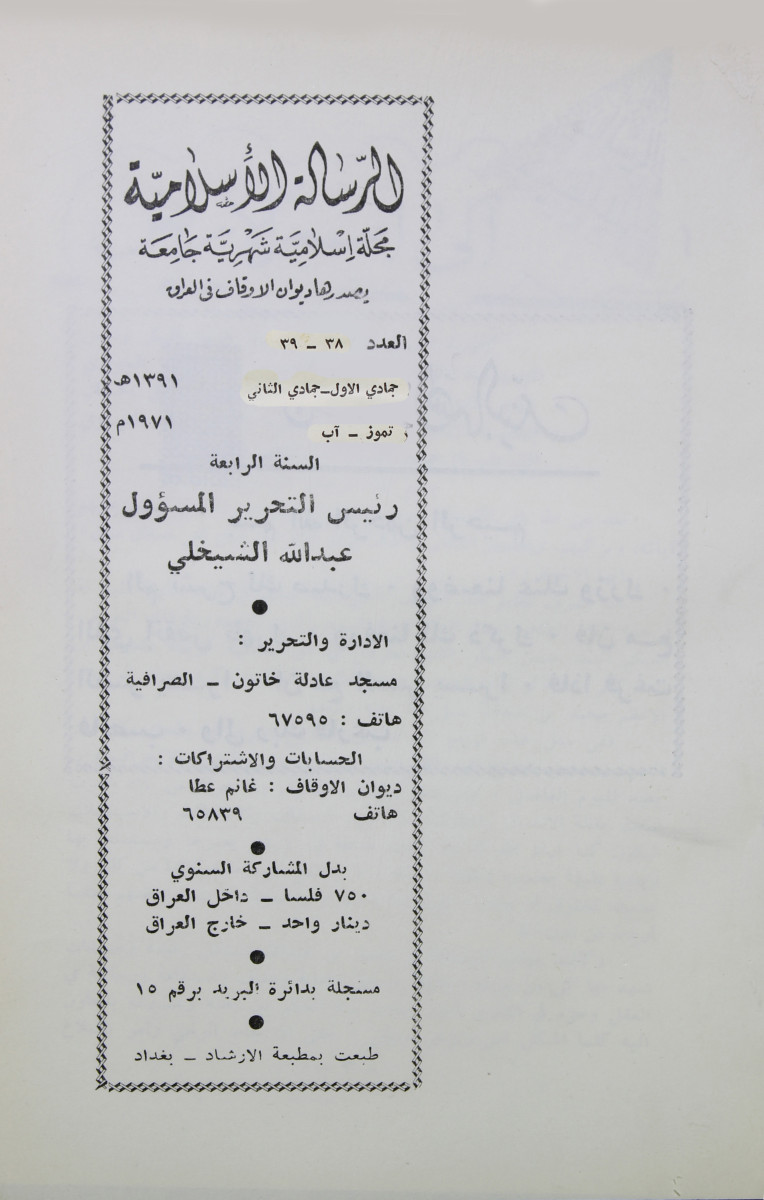 الرسالة الأسلامية
مجلة إسلامية شهرية جامعة
يصدرها ديوان الاوقاف في العراق
العدد ٣٨ ـ ٣٩
جمادي الاول ـ جمادي الثاني ١٣٩١هـ
تموز ـ آب ١٩٧١م
السنة الرابعة
رئيس التحرير المسؤول
عبدالله الشيخلي
الادارة والتحرير :
مسجد عادلة خاتون ـ الصرافية
هاتف : ٦٧٥٩٥
الحسابات والاشتراكات :
ديوان الاوقاف : غانم عطا
هاتف ٦٥٨٣٩
بدل المشاركة السنوي
٧٥٠ فلسا ـ داخل العراق
دينار واحد ـ خارج العراق
مسجلة بدائرة البريد برقم ١٥
طبعت بمطبعة الارشاد ـ بغداد